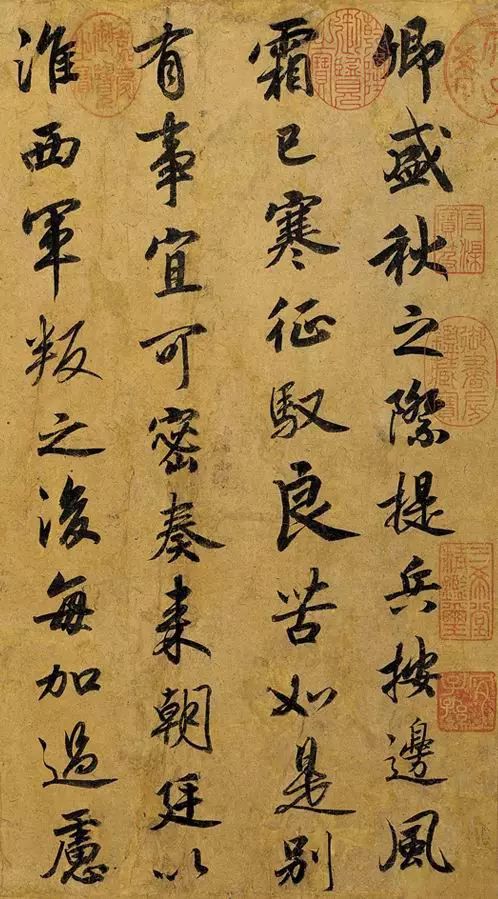 卿盛秋之際提兵按邊風
霜已寒征馭良苦如是别
有事宜可密奏来朝廷以
淮西軍叛之後每加過慮
三希堂精鑑璽